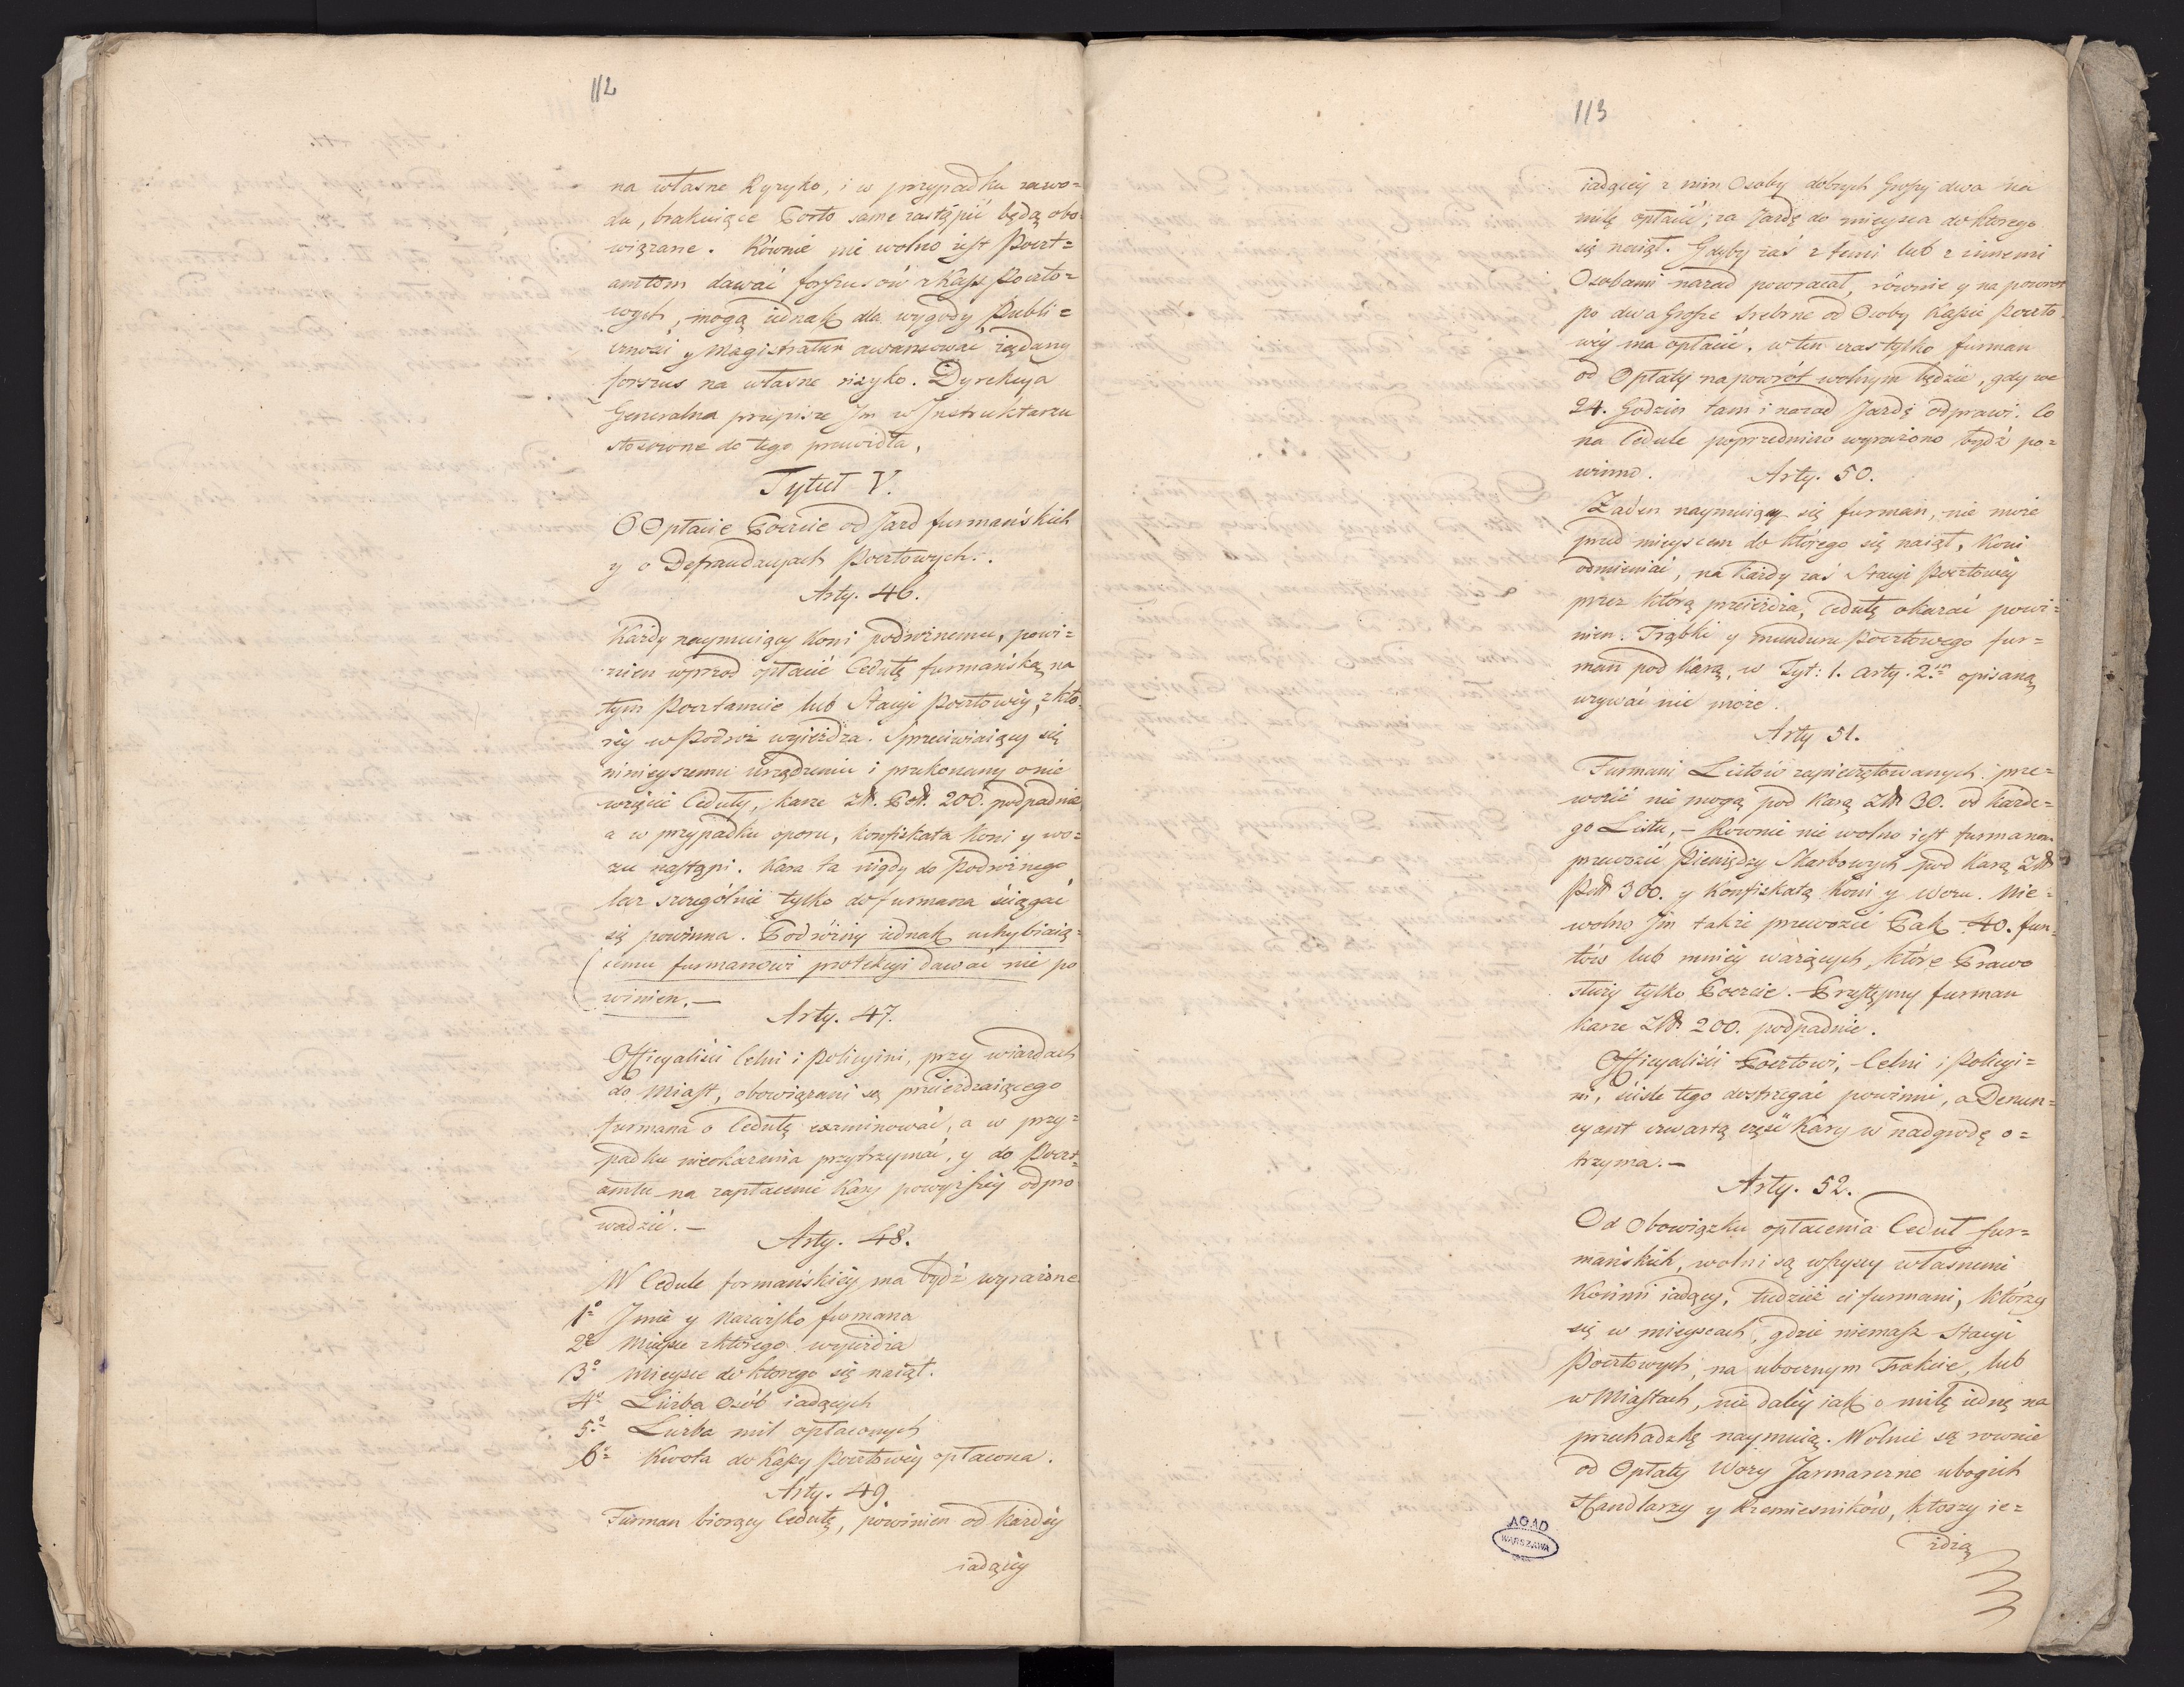 112
na własne Ryzyko, i w przypadku zawo=
du, brakuiące Porto same zastąpić będą obo=
wiązane. Równie nie wolno iest Poczt=
amtom dawać forszusów z Kass Poczto=
wych, mogą iednak dla wygody Publi=
czności y Magistratur awansować żądany
forszus na własne rizyko. Dyrekcya
Generalna przepisze Im w Instruktarzu
stosowne do tego prawidła.
Tytuł V.
O Opłacie Poczcie od Jazd furmańskich
y o Defraudacyach Pocztowych.
Arty. 46.
Każdy naymuiący Koni podróżnemu, powi=
nien wprzod opłacić Cedułę furmańską na
tym Pocztamcie lub Stacyi Pocztowéy, z któ=
réy w Podróż wyieżdza. Sprzeciwiaiący się
ninieyszemu urządzeniu i przekonany o nie
wzięcie Ceduły, karze Złt. Pol. 200. podpadnie
a w przypadku oporu, konfiskata koni y wo=
zu nastąpi. Kara ta nigdy do Podróżnego
lecz szczególnie tylko do furmana ściągać
się powinna. Podróżny iednak uchybiaią=
cemu furmanowi protekcyi dawać nie po
winien. —
Arty. 47.
Officyaliści Celni i Policyini, przy wiazdach
do Miast, obowiązani są przeieżdzaiącego
furmana o Cedułę examinować, a w przy=
padku nieokazania przytrzymać, y do Poczt=
amtu na zapłacenie Kary powyższéy odpro
wadzić. —
Arty. 48.
W Cedule formańskiéy ma bydź wyrażone
1º Jmie y Nazwisko furmana
2º Mieysce z którego wyieżdża
3º Mieysce do ktorego się naiął.
4º Liczba Osób iadących
5º Liczba mil opłaconych
6º Kwota do Kassy Pocztowéy opłacona.
Arty. 49.
Furman biorący Cedułę, powinien od każdéy
iadącéy
113
iadącéy z nim Osoby dobrych Groszy dwa na
milę opłacić, za Jazdę do mieysca do ktorego
się naiął. Gdyby zaś z temi lub z innemi
Osobami nazad powracał, równie y na powrot
po dwa Grosze srebrne od Osoby Kassie Poczto=
wéy ma opłacić. w ten czas tylko furman
od Opłaty na powrót wolnym będzie, gdy we
24. Godzin tam i nazad Jazdę odprawi. Co
na Cedule poprzedniczo wyrażono bydź po=
winno.
Arty. 50.
Żaden naymuiący się furman, nie może
przed mieyscem do którego się naiął, Koni
odmieniać, na każdy zaś Stacyi Pocztowéy
przez którą przeieżdża, Cedułę okazać powi=
nien. Trąbki y munduru Pocztowego fur=
man pod karą, w Tyt: 1. Arty. 2.im opisaną
używać nie może.
Arty 51.
Furmani Listów zapieczętowanych prze=
wozić nie mogą pod Karą Złt 30. od każde=
go Listu, — Rownie nie wolno iest furmanom
przewozić Pieniędzy Skarbowych pod Karą Złt
Pol 300. y Konfiskatą koni y wozu. Nie=
wolno Jm także przewozić Pak 40. fun=
tów lub mniéy ważących, które Prawo
służy tylko Poczcie. Przestępny furman
karze Złt 200. podpadnie.
Officyaliści Pocztowi, Celni i Policyi=
ni, ściśle tego dostrzegać powinni, a Denun=
cyant czwartą część Kary w nadgrodę o=
trzyma. —
Arty. 52.
Od Obowiązku opłacenia Ceduł fur=
mańskich, wolni są wszyscy własnemi
Końmi iadący, tudzież ci furmani, którzy
się w mieyscach, gdzie niemasz Stacyi
Pocztowych, na ubocznym Trakcie, lub
w Miastach, nie daléy iak o milę iednę na
przechadzkę naymuią. Wolne są rownie
od Opłaty Wozy Jarmarczne ubogich
Handlarzy y Rzemiesników, ktorzy ie=
żdżą
AGAD
WARSZAWA